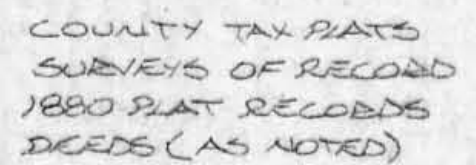 COUNTY TAX PLATS
SURVEYS OF RECORD
1880 PLAT RECORDS
DEEDS (AS NOTED)